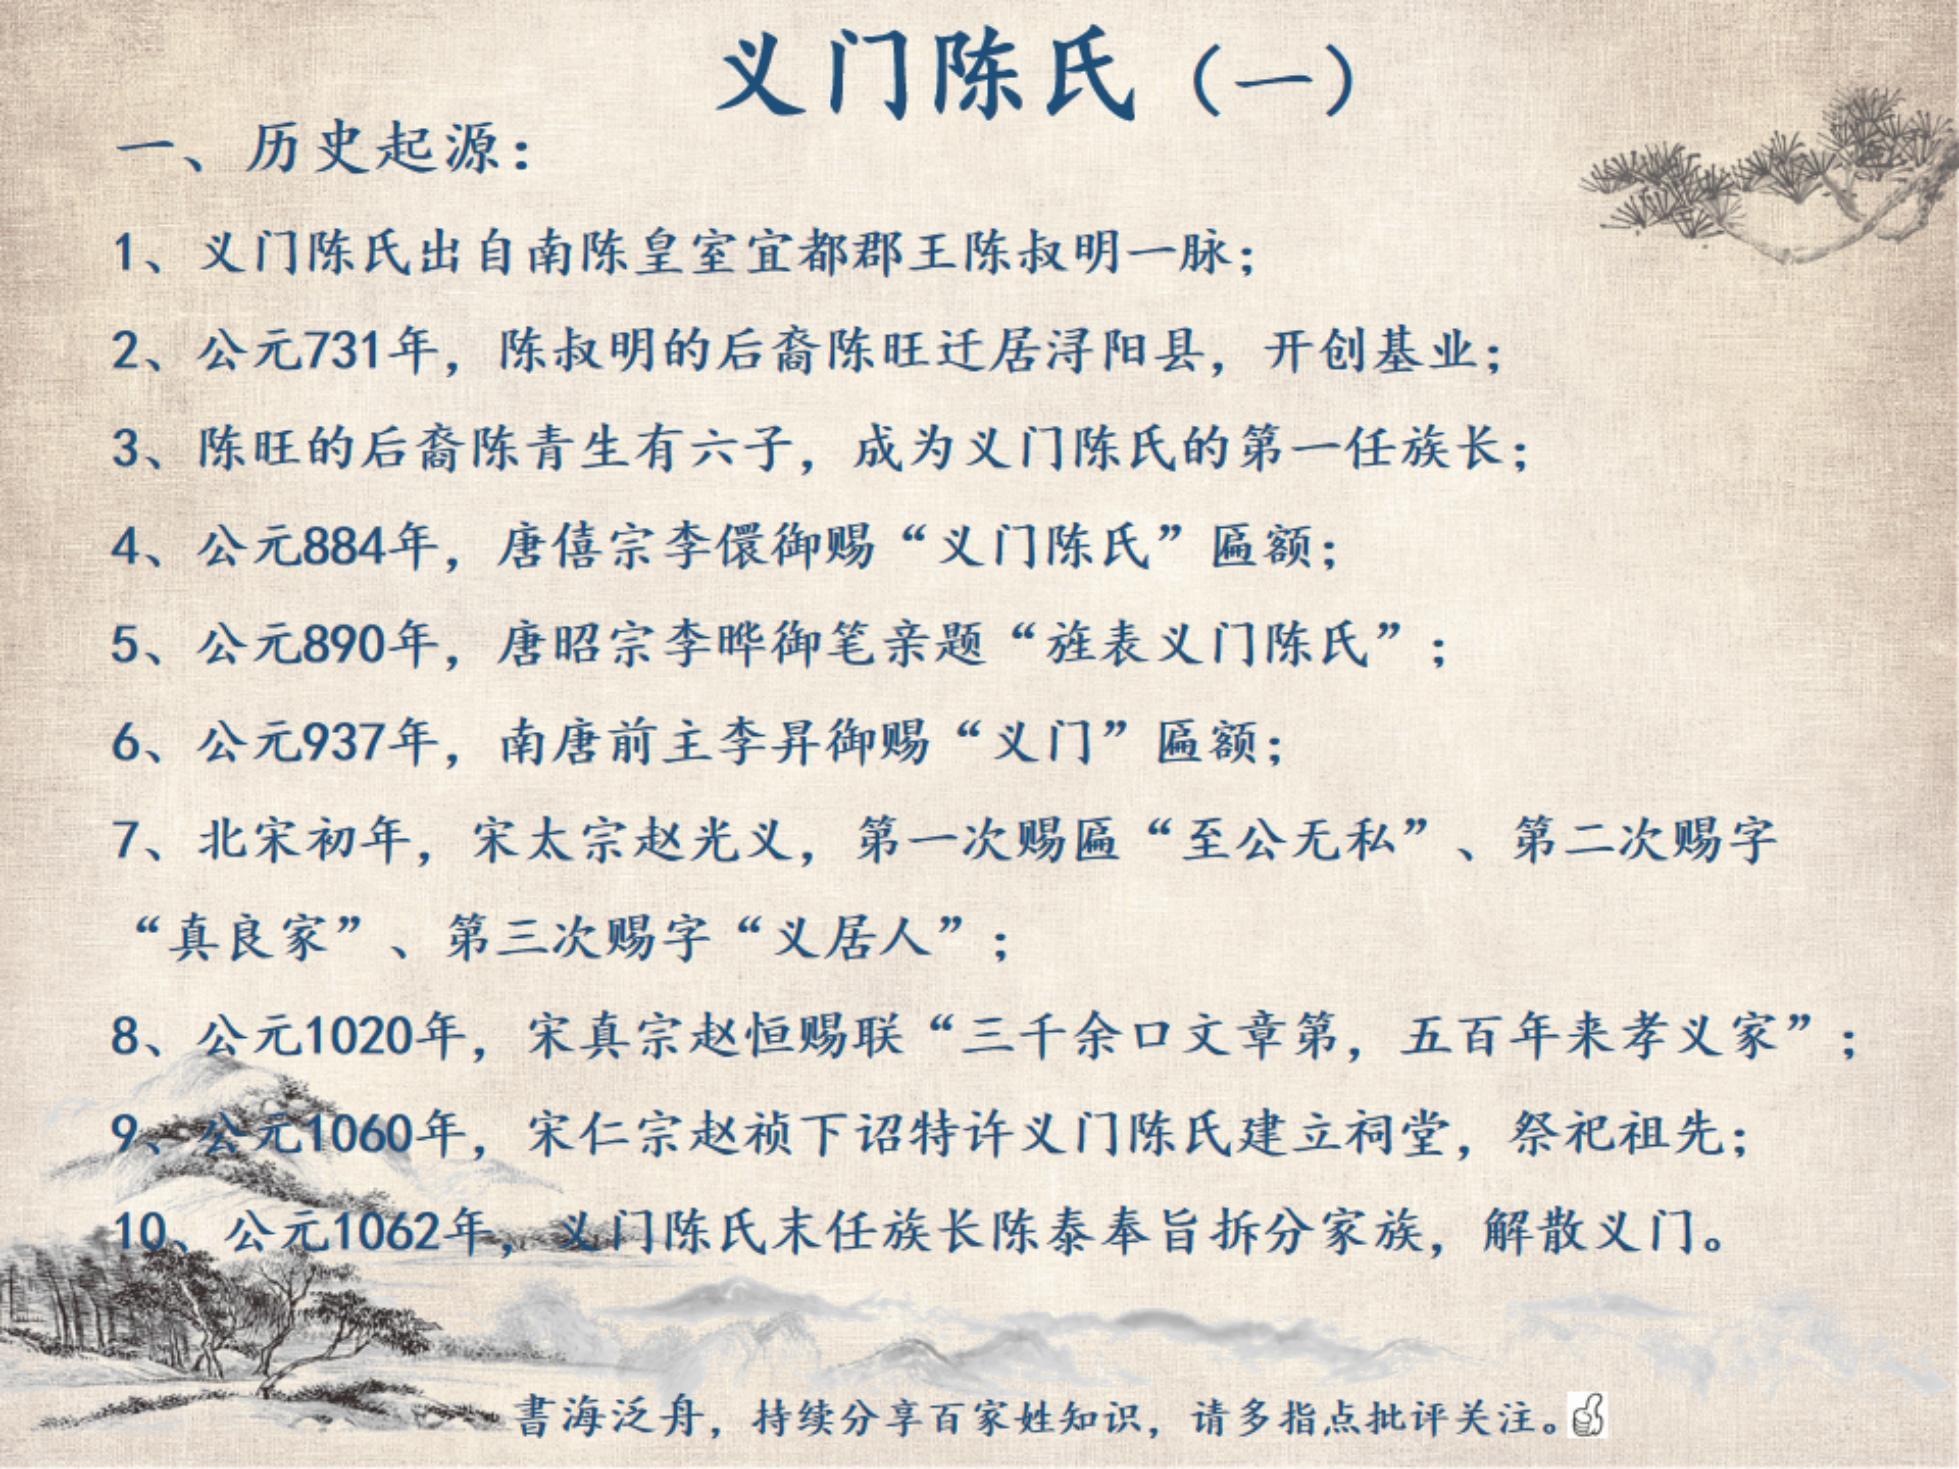 义门陈氏（一）
一、历史起源：
1、义门陈氏出自南陈皇室宜都郡王陈叔明一脉；
2、公元731年，陈叔明的后裔陈旺迁居浔阳县，开创基业；
3、陈旺的后裔陈青生有六子，成为义门陈氏的第一任族长；
4、公元884年，唐僖宗李儇御赐“义门陈氏”匾额；
5、公元890年，唐昭宗李晔御笔亲题“旌表义门陈氏”；
6、公元937年，南唐前主李昇御赐“义门”匾额；
7、北宋初年，宋太宗赵光义，第一次赐匾“至公无私”、第二次赐字
“真良家”、第三次赐字“义居人”；
8、公元1020年，宋真宗赵恒赐联“三千余口文章第，五百年来孝义家”；
9、公元1060年，宋仁宗赵祯下诏特许义门陈氏建立祠堂，祭祀祖先；
10、公元1062年，义门陈氏末任族长陈泰奉旨拆分家族，解散义门。
書海泛舟，持续分享百家姓知识，请多指点批评关注。